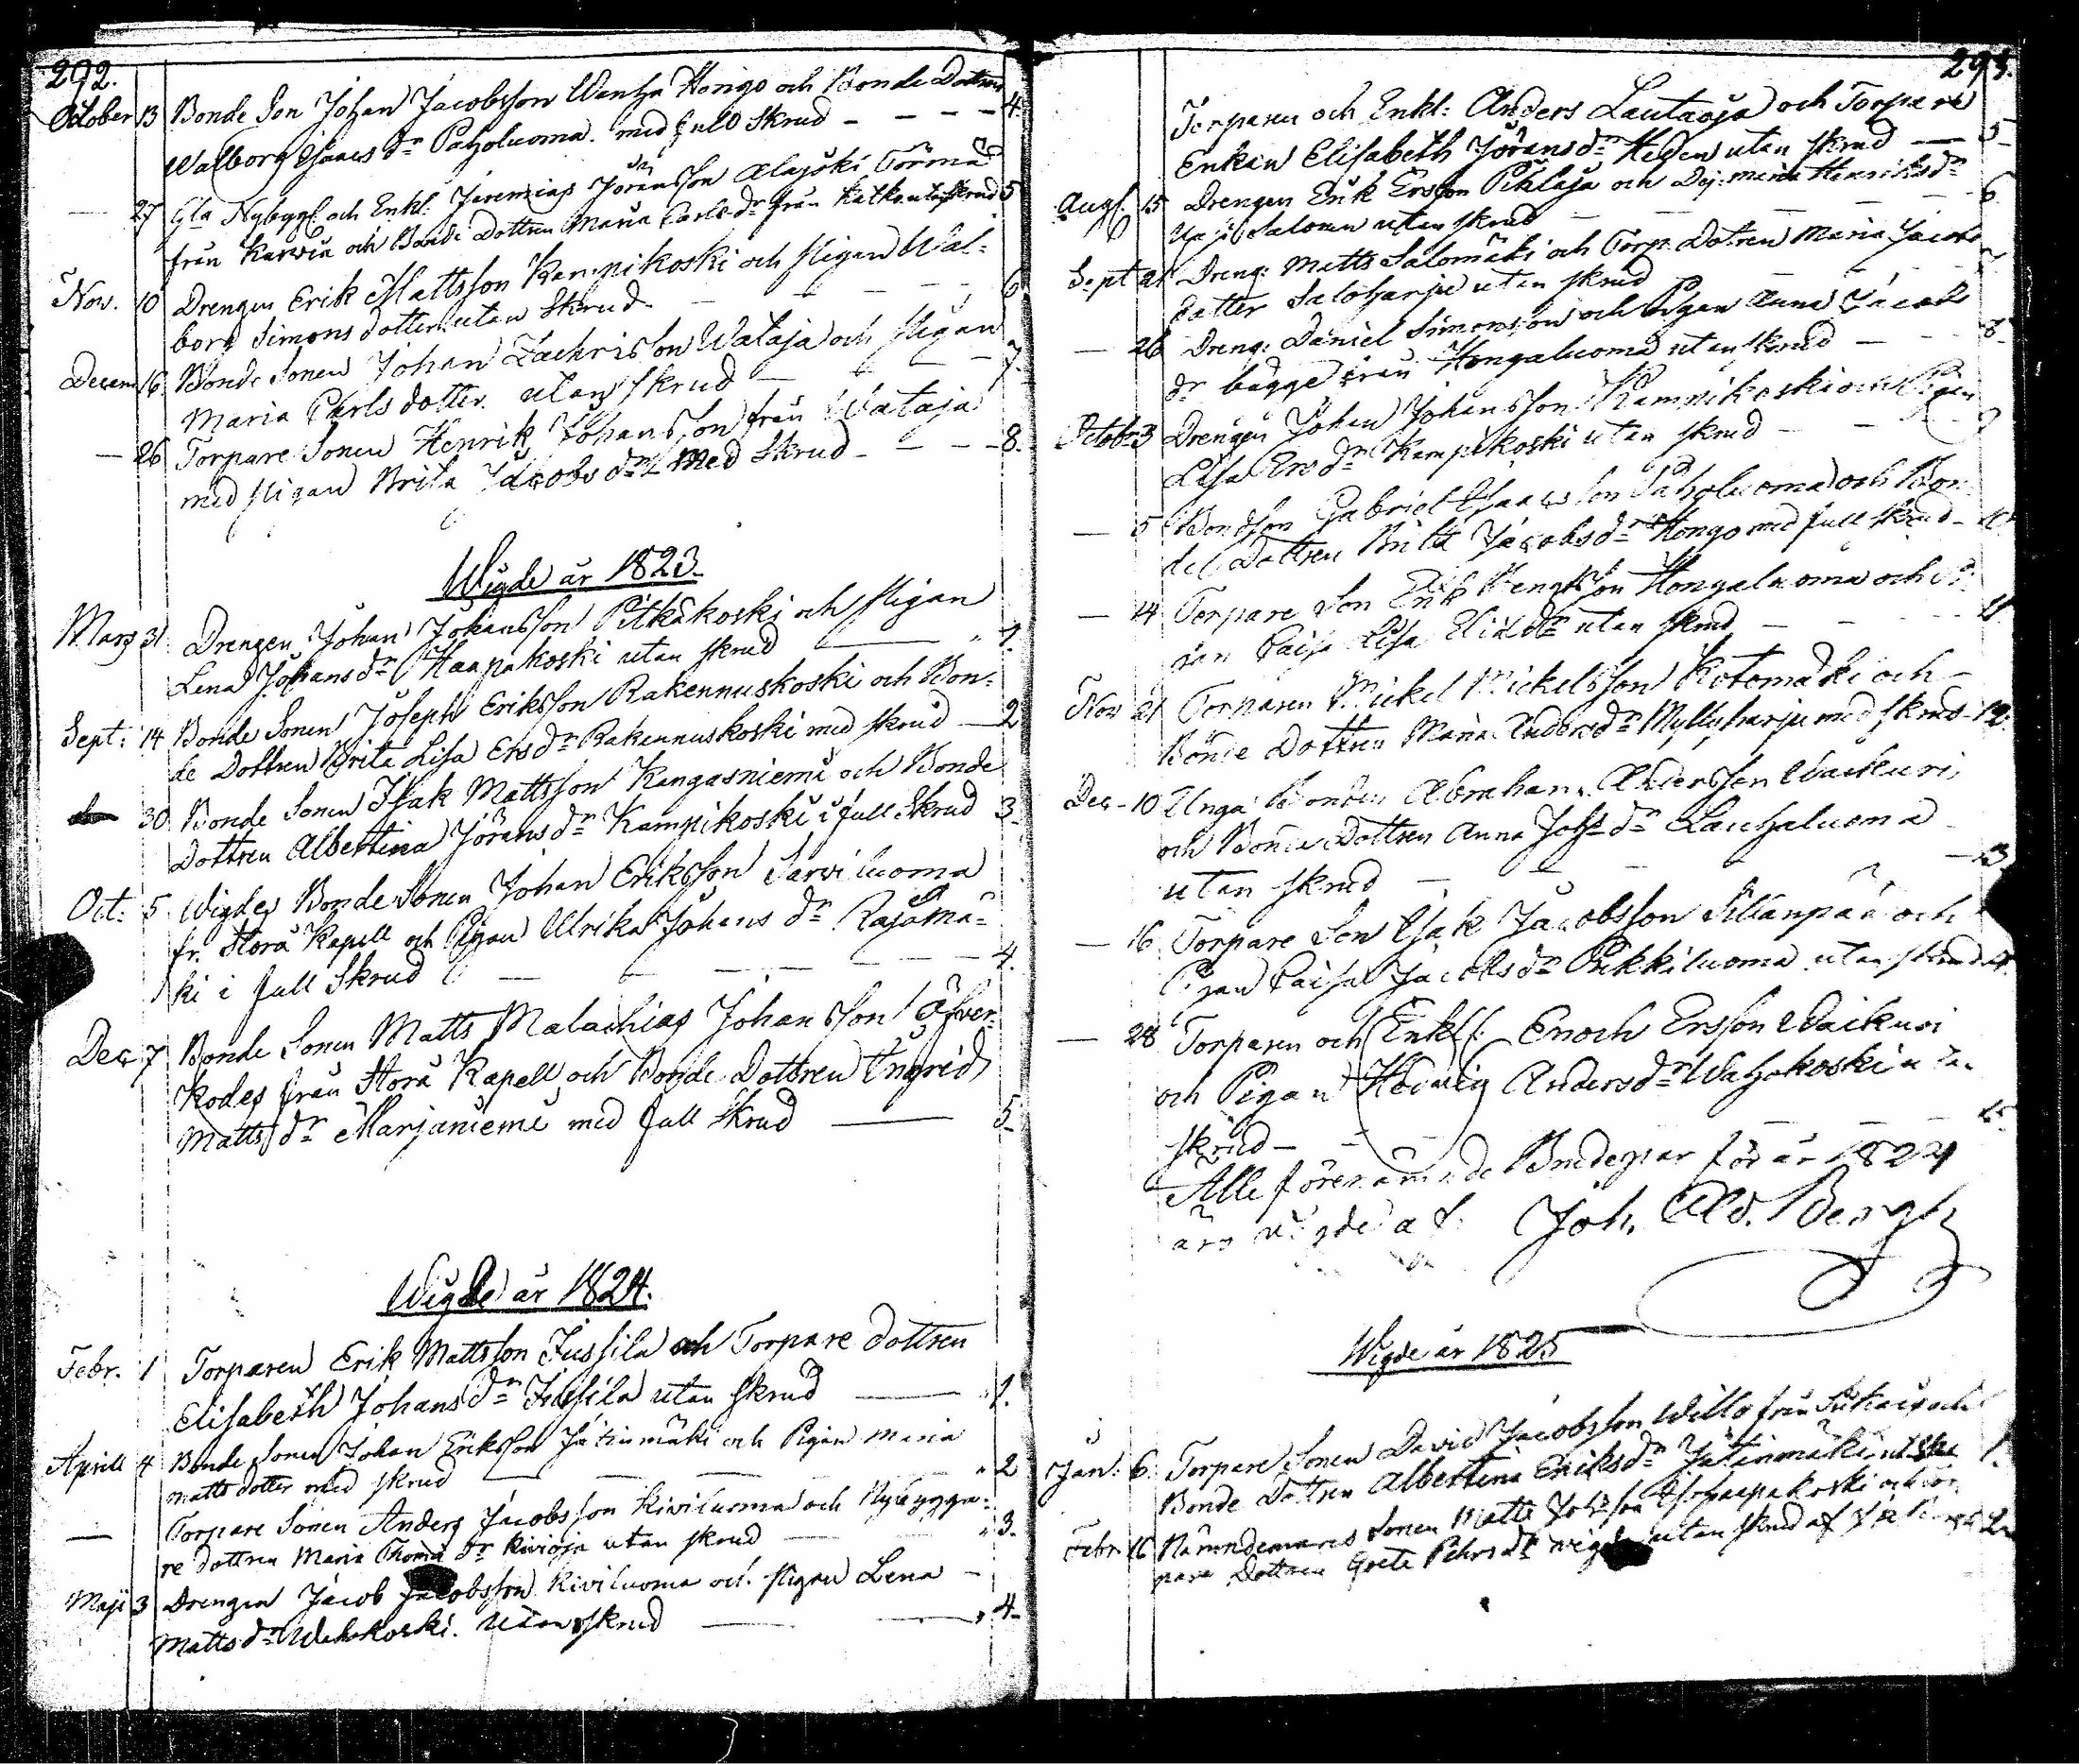 292.
October 13 Bonde Son Johan Jacobsson Wanha Hongo och Bonde Dottren
Walborg Isaacs dr Paholuoma. med full Skrud - - - - 4.
- 27 Gla Nybygg. och Enkl: Jeremias Jöransson Alajoki Törmä
från Karvia och Bonde Dottren Maria Carls dr från utan skrud 5
Nov. 10 Drengen Erik Mattsson Kampikoski och Pigan Wal-
borg Simons dotter utan Skrud - - - - - 6
Decem 16. Bonde Sonen Johan Zachrisson Wataja och Pigan
Maria Carls dotter. utan skrud - - - - 7.
- 26 Torpare Sonen Henrik Johansson från Wataja
med Pigan Brita Jacobs dr med Skrud - - - 8.
Wigde år 1823.
Mars 31 Drengen Johan Johansson Pitkäkoski och Pigan
Lena Johans dr Haapakoski utan skrud — " 1.
Sept: 14 Bonde Sonen Joseph Eriksson Rakennuskoski och Bon-
de Dottren Brita Lisa Ers dr Rakennuskoski med skrud — 2
30. Bonde Sonen Isak Mattsson Kangasniemi och Bonde
Dottren Albertina Jörans dr Kampikoski i full Skrud 3.
Oct: 5 Wigdes Bonde Sonen Johan Eriksson Sarviluoma
fr. Storå Kapell och Pigan Ulrika Johans dr Rajamä-
ki i full Skrud - - - - - - 4.
Dec 7 Bonde Sonen Matts Malachias Johansson Öfver-
kodes från Storå Kapell och Bonde Dottren Ingrid
Matts dr Marjaniemi med full Skrud — 5.
Wigde år 1824.
Febr. 1 Torparen Erik Mattsson Jussila och Torpare dottren
Elisabeth Johans dr Jussila utan skrud — " 1.
Aprill 4 Bonde Sonen Johan Eriksson Jätinmäki och Pigan Maria
Matts dotter med skrud - - - - " 2
— Torpare Sonen Anders Jacobsson Kiviluoma och Nybygga-
re dottren Maria Thoma dr Kivioja utan skrud — " 3.
Maji 3 Drengen Jacob Jacobsson Kiviluoma och Pigan Lena -
Matts dr Wahokoski. utan skrud — " 4.
293.
Torparen och Enkl: Anders Lautaoja och Torpare
Enkan Elisabeth Jörans dr Heden utan skrud — 5
Aug. 15 Drengen Erik Ersson Pihlaja och Maria Henriks dr
Salonen utan skrud - - - - - 6
Sept 21 Dreng: Matts Salomäki och Torp. Dotren Maria Jacobs
dotter Saloharju utan skrud - - - 7.
- 26 Dreng: Daniel Simonsson och Pigan Anna Jacobs
dr bägge från Hongaluoma utan skrud - - 8
Octobr 3 Drengen Johan Johansson Kampikoski och Pigan
Lisa Ers dr Kampikoski utan skrud - - 9
- 5 Bondson Gabriel Isaacsson Paholuoma och Bon-
de Dottren Brita Jacobs dr Hongo med full skrud - 10
- 14 Torpare Son Erik Hongaluoma och Pi-
gan Caisa Lisa dr utan skrud - - - 11
Nov 21 Torparen Mickel Mickelsson Kotomäki och
Bonde Dottren Maria Anders dr Myllyharju med skrud - 12.
Dec - 10 Unga Bonden Abraham Andersson Waikuri
och Bonde Dottren Anna Johs dr Lauhaluoma
utan skrud - - - - - 13
- 16. Torpare Son Isak Jacobsson Sillanpää och
Pigan Caisa Jacobs dr Pukkiluoma utan skrud 14
- 28 Torparen och Enkl: Enoch Ersson Waikuri
och Pigan Hedwig Anders dr Wahokoski utan
skrud - - - - - 15
Alle förenämnde Brudepar för år 1824
äro wigde af Joh. Ad. Bergh
Wigde år 1825
Jan: 6. Torpare Sonen David Jacobsson Willo från och
Bonde Dottren Albertina Eriks dr Jätinmäki 1.
Febr. 16 Nämndemans Sonen Matts Johsson Haapakoski och Tor-
pare Dottren Greta Pehrs dr wigde utan skrud af 2